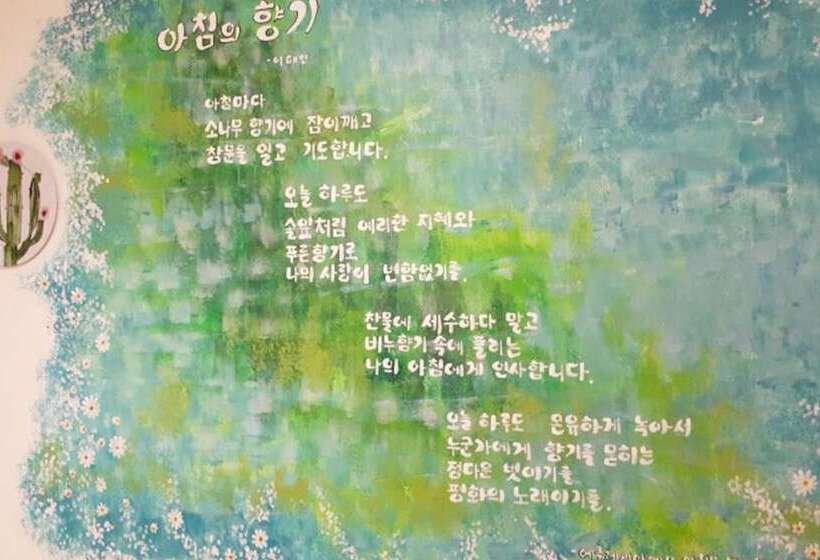 아침의 향기
아침마다
소나무 향기에 잠이깨고
창문을 열고 기도합니다.
오늘 하루도
솔잎처럼 예리한 지혜와
푸른향기로
나의 사랑이 변함없기를.
찬물에 세수하다 말고
비누향기 속에 풀리는
나의 아침에게 인사합니다.
오늘 하루도 온유하게 녹아서
누군가에게 향기를 묻히는
정다운 벗이기를
평화의 노래이기를.